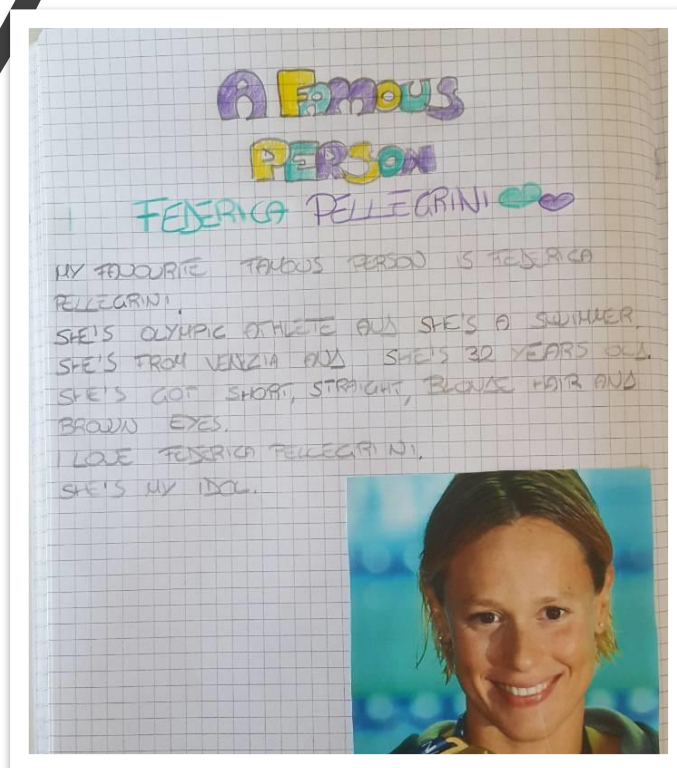 A FAMOUS
PERSON
FEDERICA PELLEGRINI
MY FAVOURITE FAMOUS PERSON IS FEDERICA
PELLEGRINI.
SHE'S OLYMPIC ATHLETE AND SHE'S A SWIMMER.
SHE'S FROM VENEZIA AND SHE'S 32 YEARS OLD.
SHE'S GOT SHORT, STRAIGHT, BLONDE HAIR AND
BROWN EYES.
I LOVE FEDERICA PELLEGRINI.
SHE'S MY IDOL.